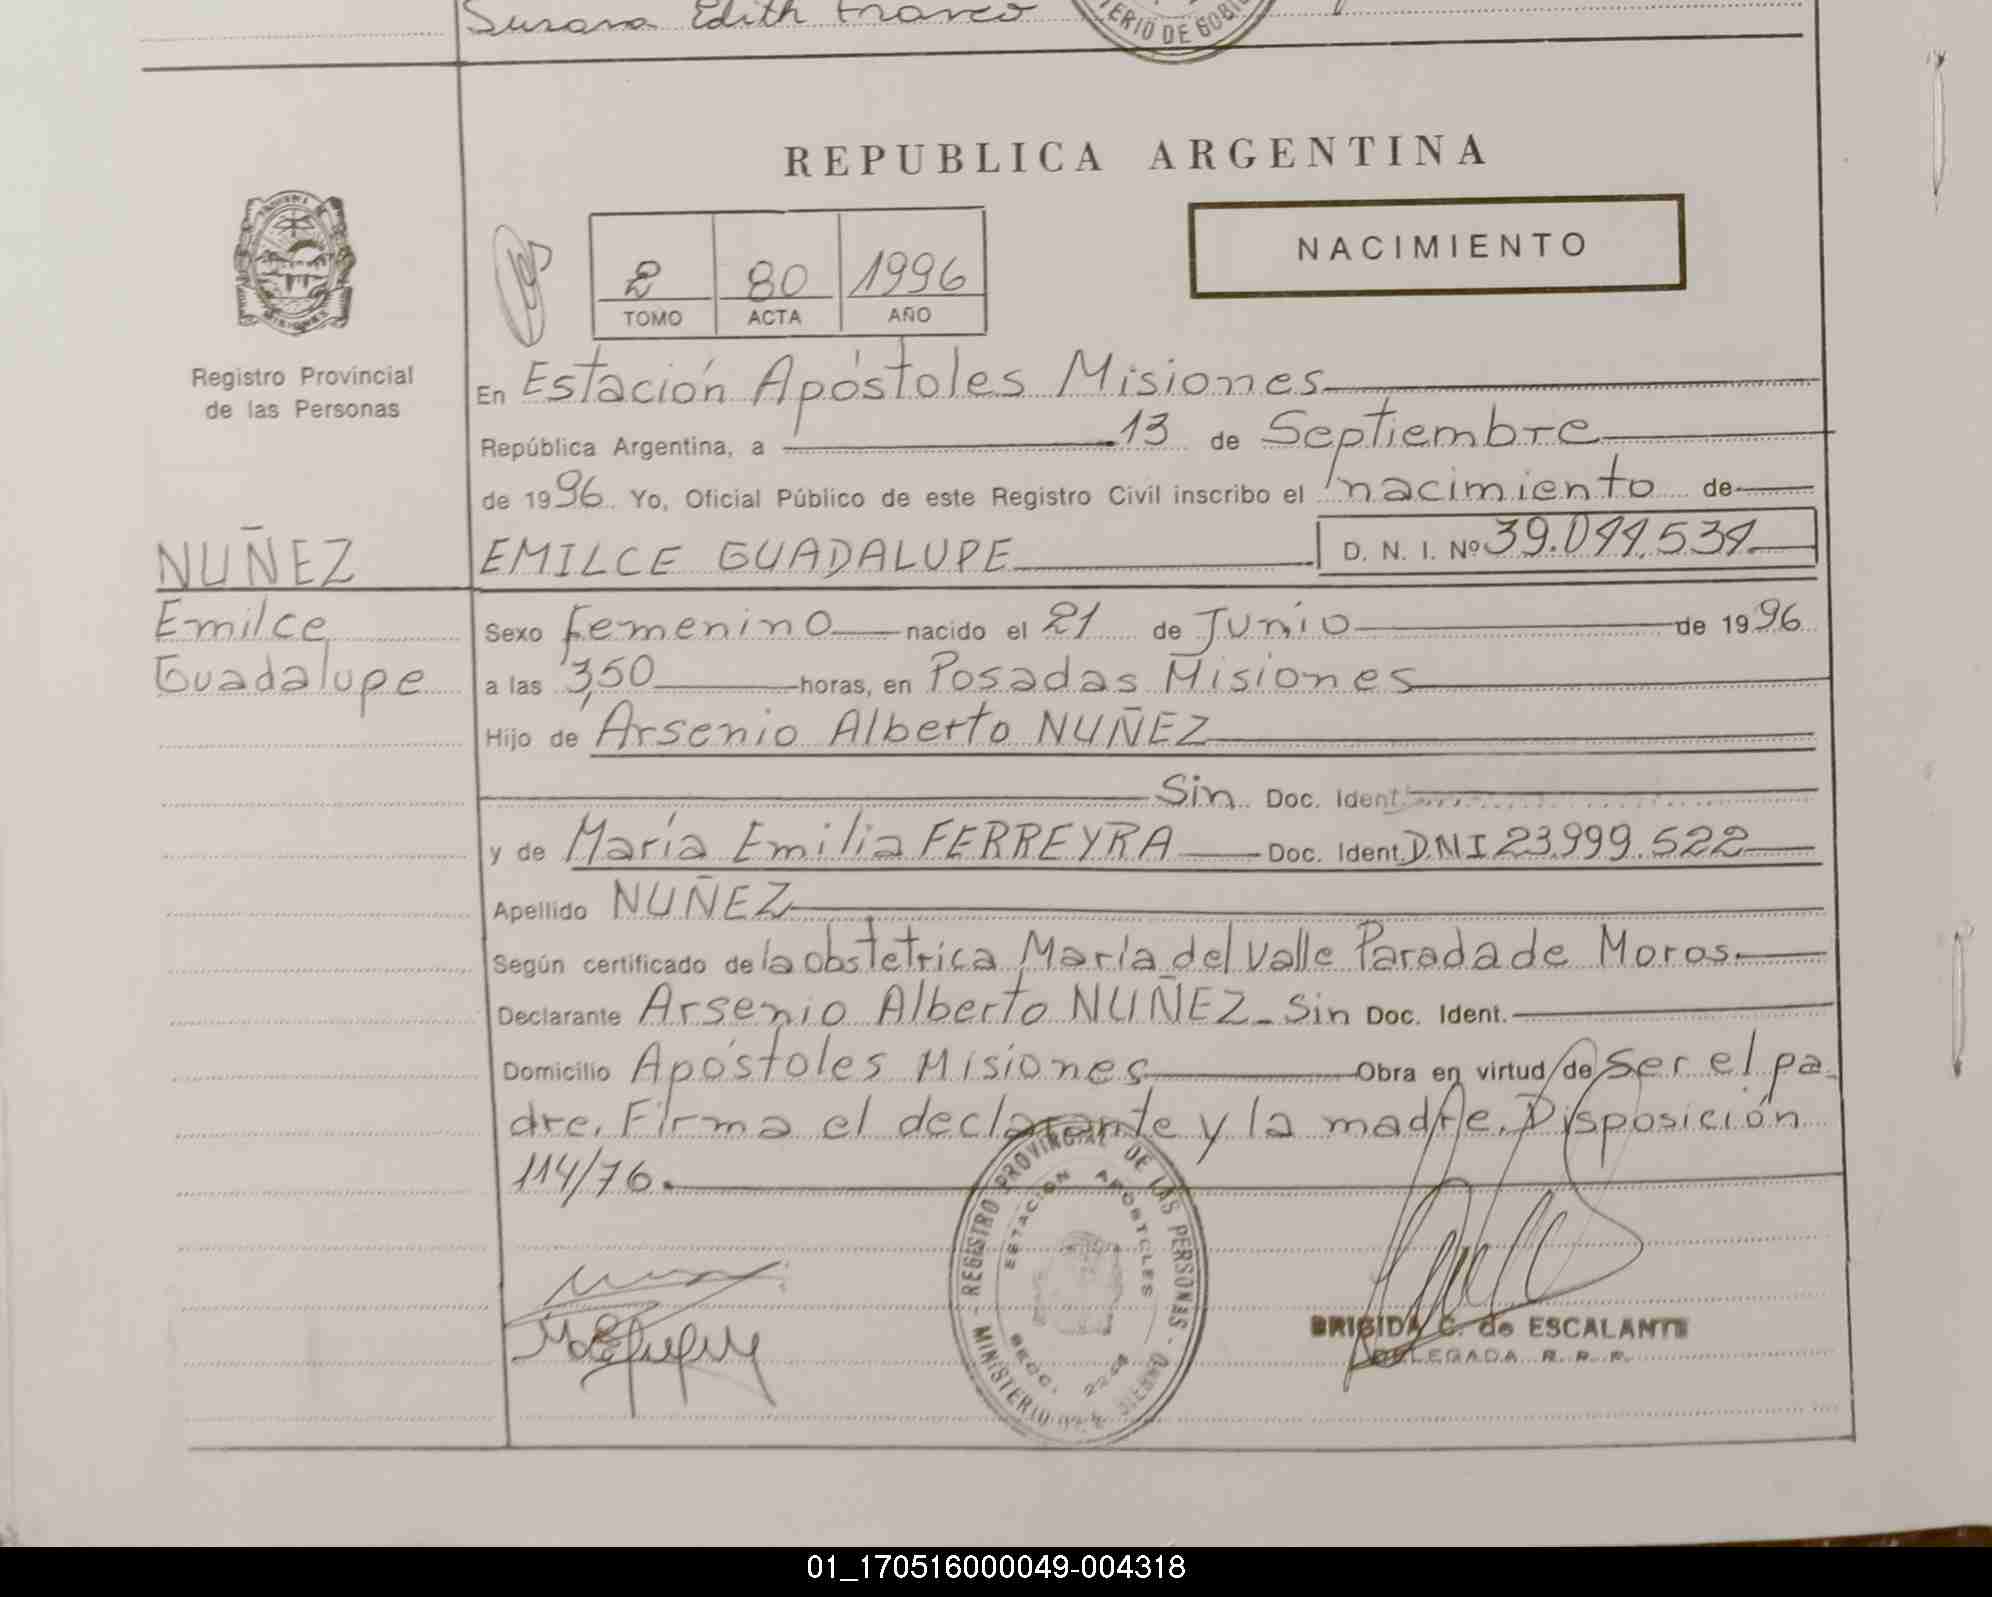 Susana Edith Franco
TERIO DE GOBI
REPUBLICA ARGENTINA
NACIMIENTO
2 80 1996
TOMO ACTA AÑO
MISIONES
Registro Provincial
de las Personas
En Estación Apóstoles Misiones
República Argentina, a 13 de Septiembre
de 1996. Yo, Oficial Público de este Registro Civil inscribo el nacimiento de
NUÑEZ
EMILCE GUADALUPE D. N. I. Nº 39.044.534
Emilce
Guadalupe
Sexo Femenino nacido el 21 de Junio de 1996
a las 3,50 horas, en Posadas Misiones
Hijo de Arsenio Alberto NUÑEZ
Sin Doc. Ident.
y de María Emilia FERREYRA Doc. Ident. DNI 23.999.522
Apellido NUÑEZ
Según certificado de la obstetrica María del Valle Parada de Moros.
Declarante Arsenio Alberto NUÑEZ - Sin Doc. Ident.
Domicilio Apóstoles Misiones Obra en virtud de Ser el pa
dre. Firma el declarante y la madre. Disposición
114/76.
REGISTRO PROVINCIAL DE LAS PERSONAS
ESTACION APOSTOLES
SECC.
MINISTERIO DE GOBIERNO
BRIGIDA C. de ESCALANTE
DELEGADA R. P. P.
01_170516000049-004318